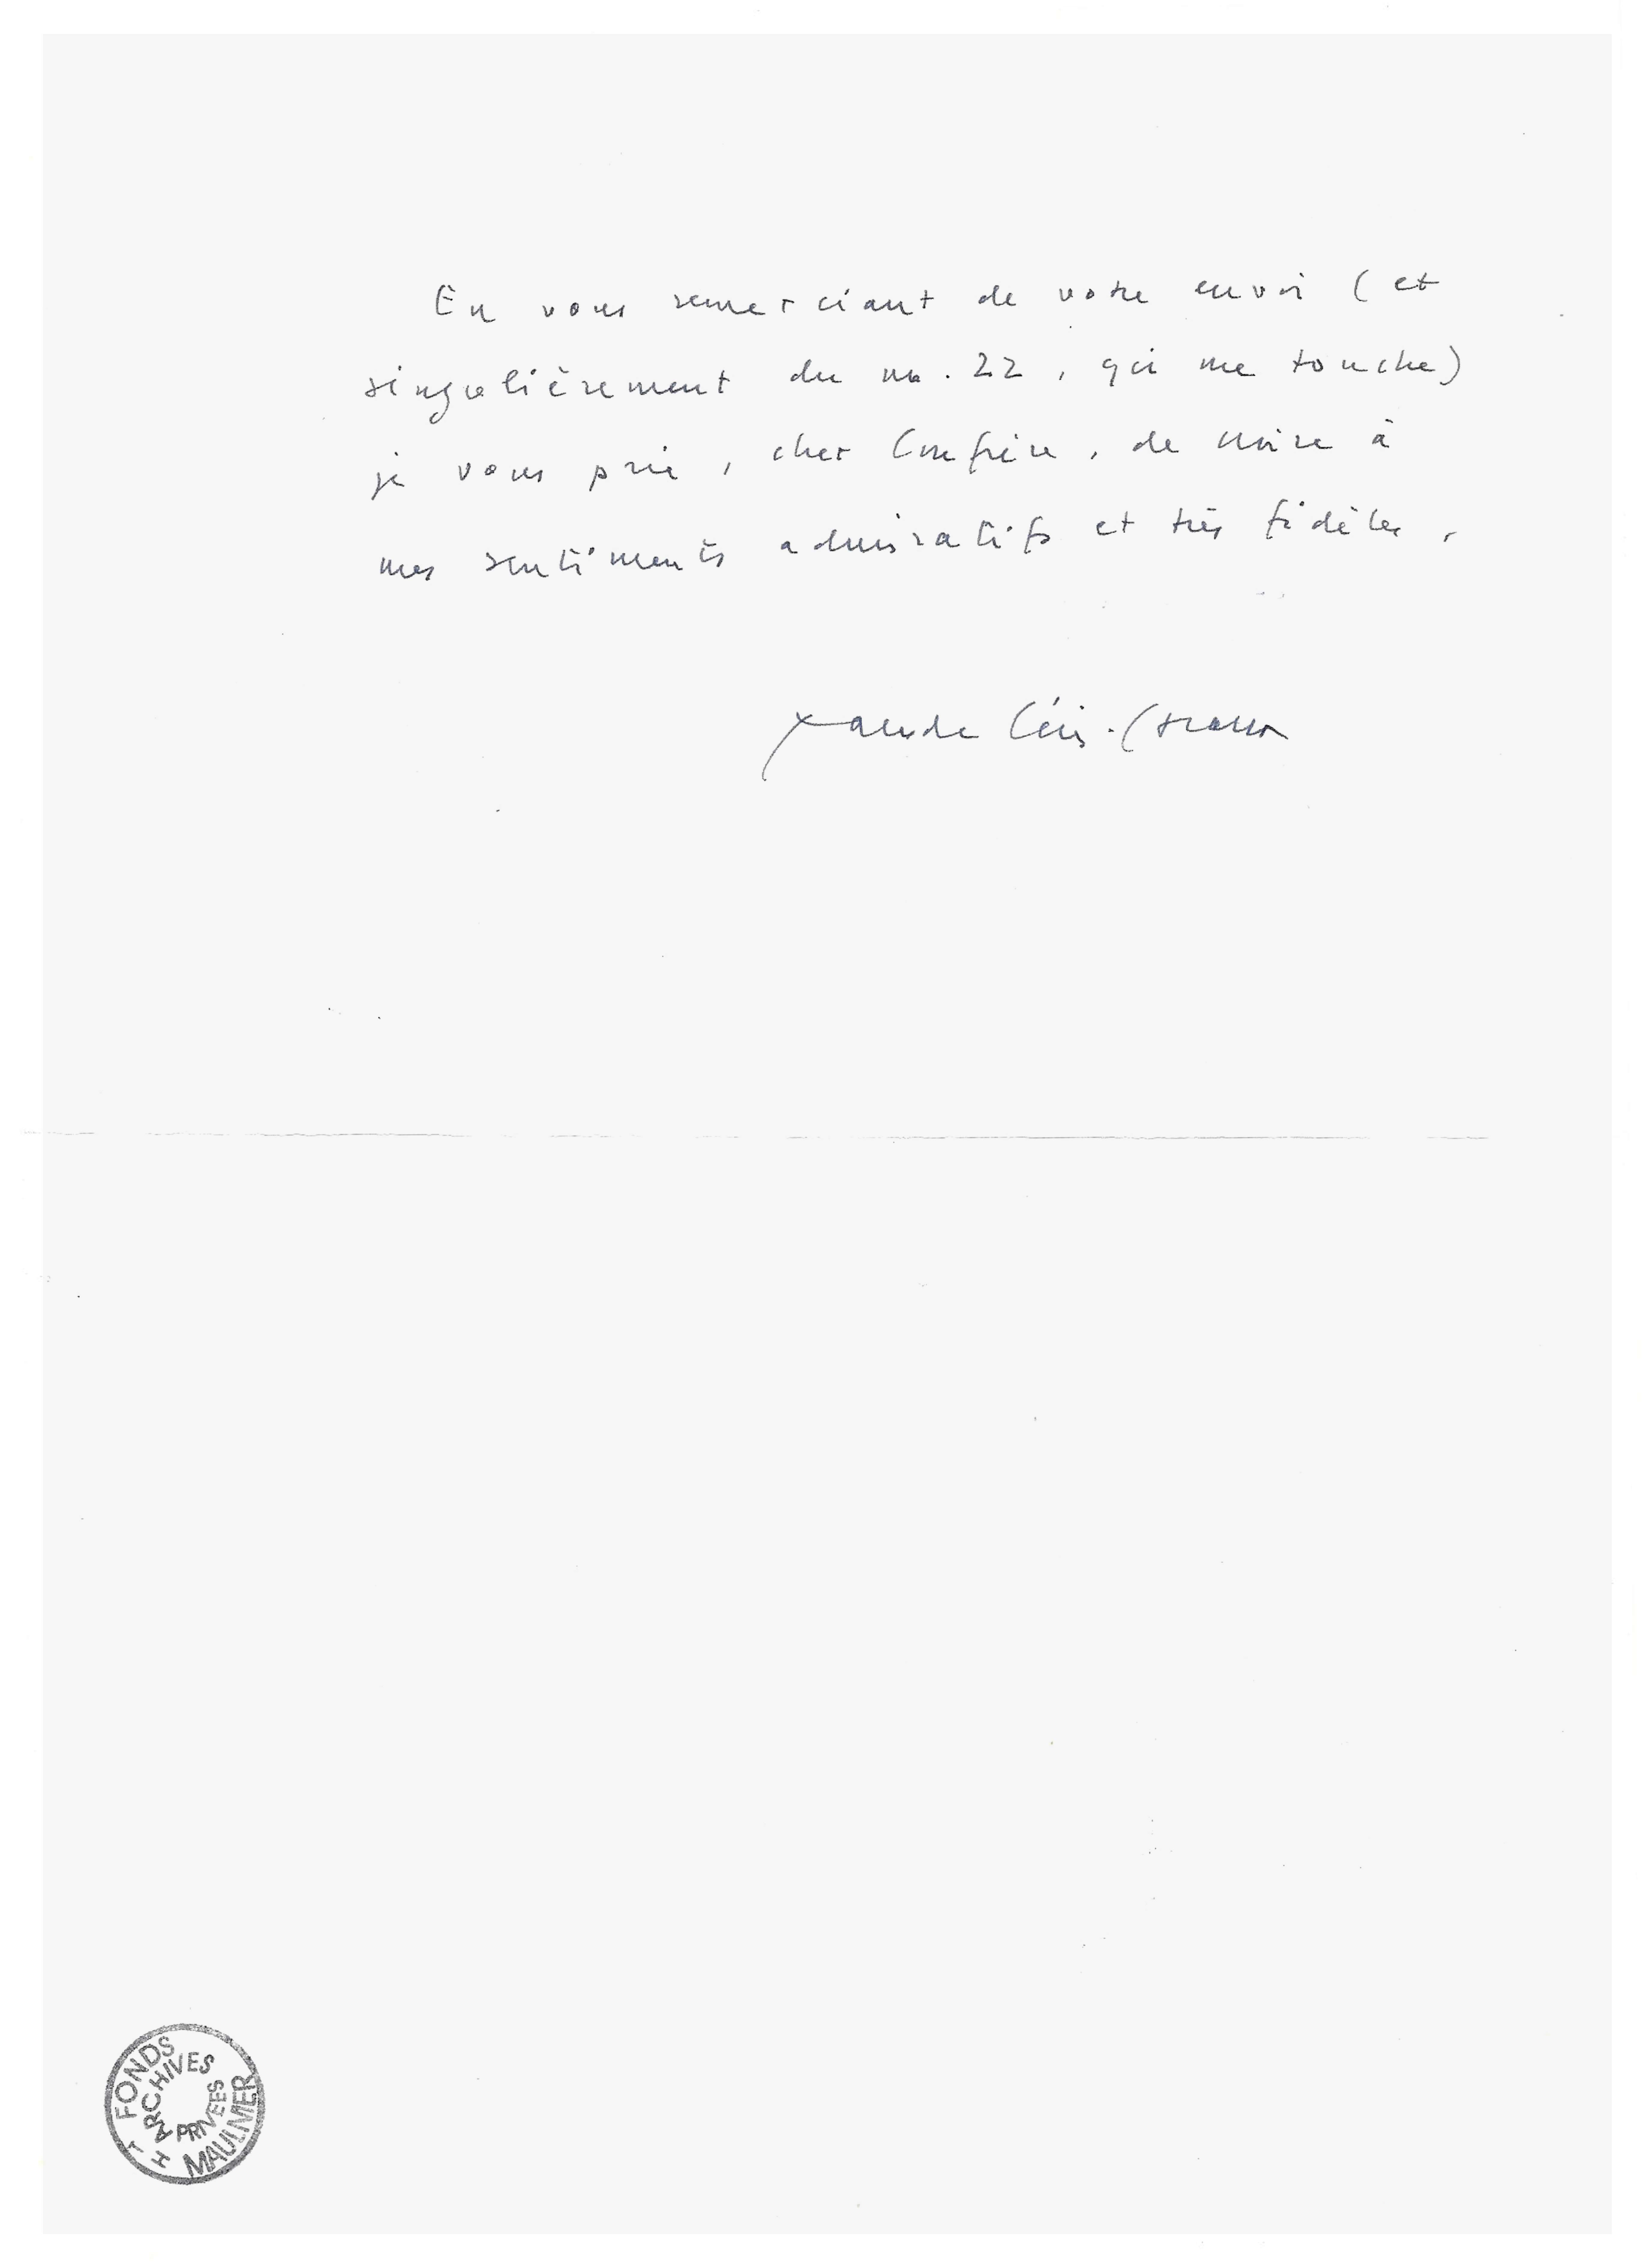 En vous remerciant de votre envoi (et
singulièrement du no. 22, qui me touche)
je vous prie, cher Confrère, de croire à
mes sentiments admiratifs et très fidèles.
Claude Lévi-Strauss
FONDS TH MAULNIER
ARCHIVES PRIVEES